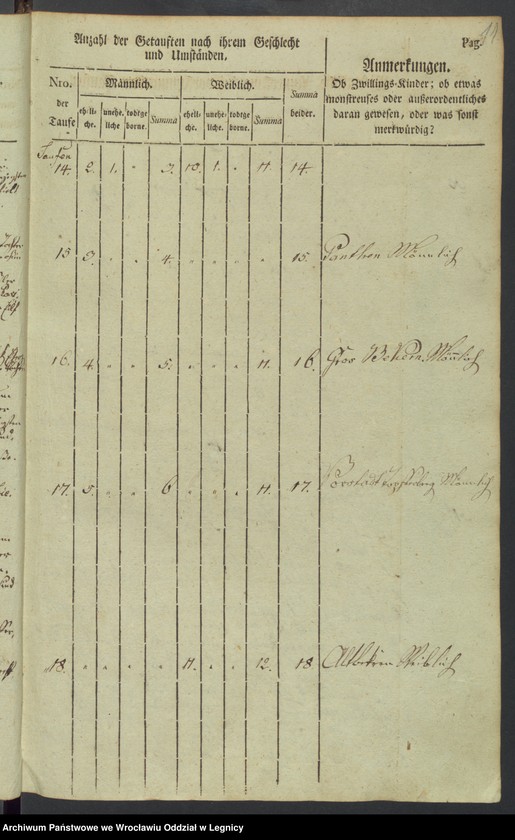 Pag.
Anzahl der Getauften nach ihrem Geschlecht
und Umständen.
Anmerkungen.
Ob Zwillings-Kinder; ob etwas
monströses oder außerordentliches
daran gewesen, oder was sonst
merkwürdig?
Nro.
der
Taufe
Männlich.
Weiblich.
Summa
beider.
eheli-
che.
unehe-
liche
todtge
borne.
Summa
eheli-
che.
unehe-
liche
todtge-
borne.
Summa
14. 2. 1. " 3. 10. 1. " 11. 14.
15 3. " " 4. " " " " 15. Panthen Männlich
16. 4. " " 5. " " " 11. 16. Gros Männlich
17. 5. " " 6 " " " 11. 17. Männlich
18. " " " " 11. " " 12. 18 Weiblich
Archiwum Państwowe we Wrocławiu Oddział w Legnicy